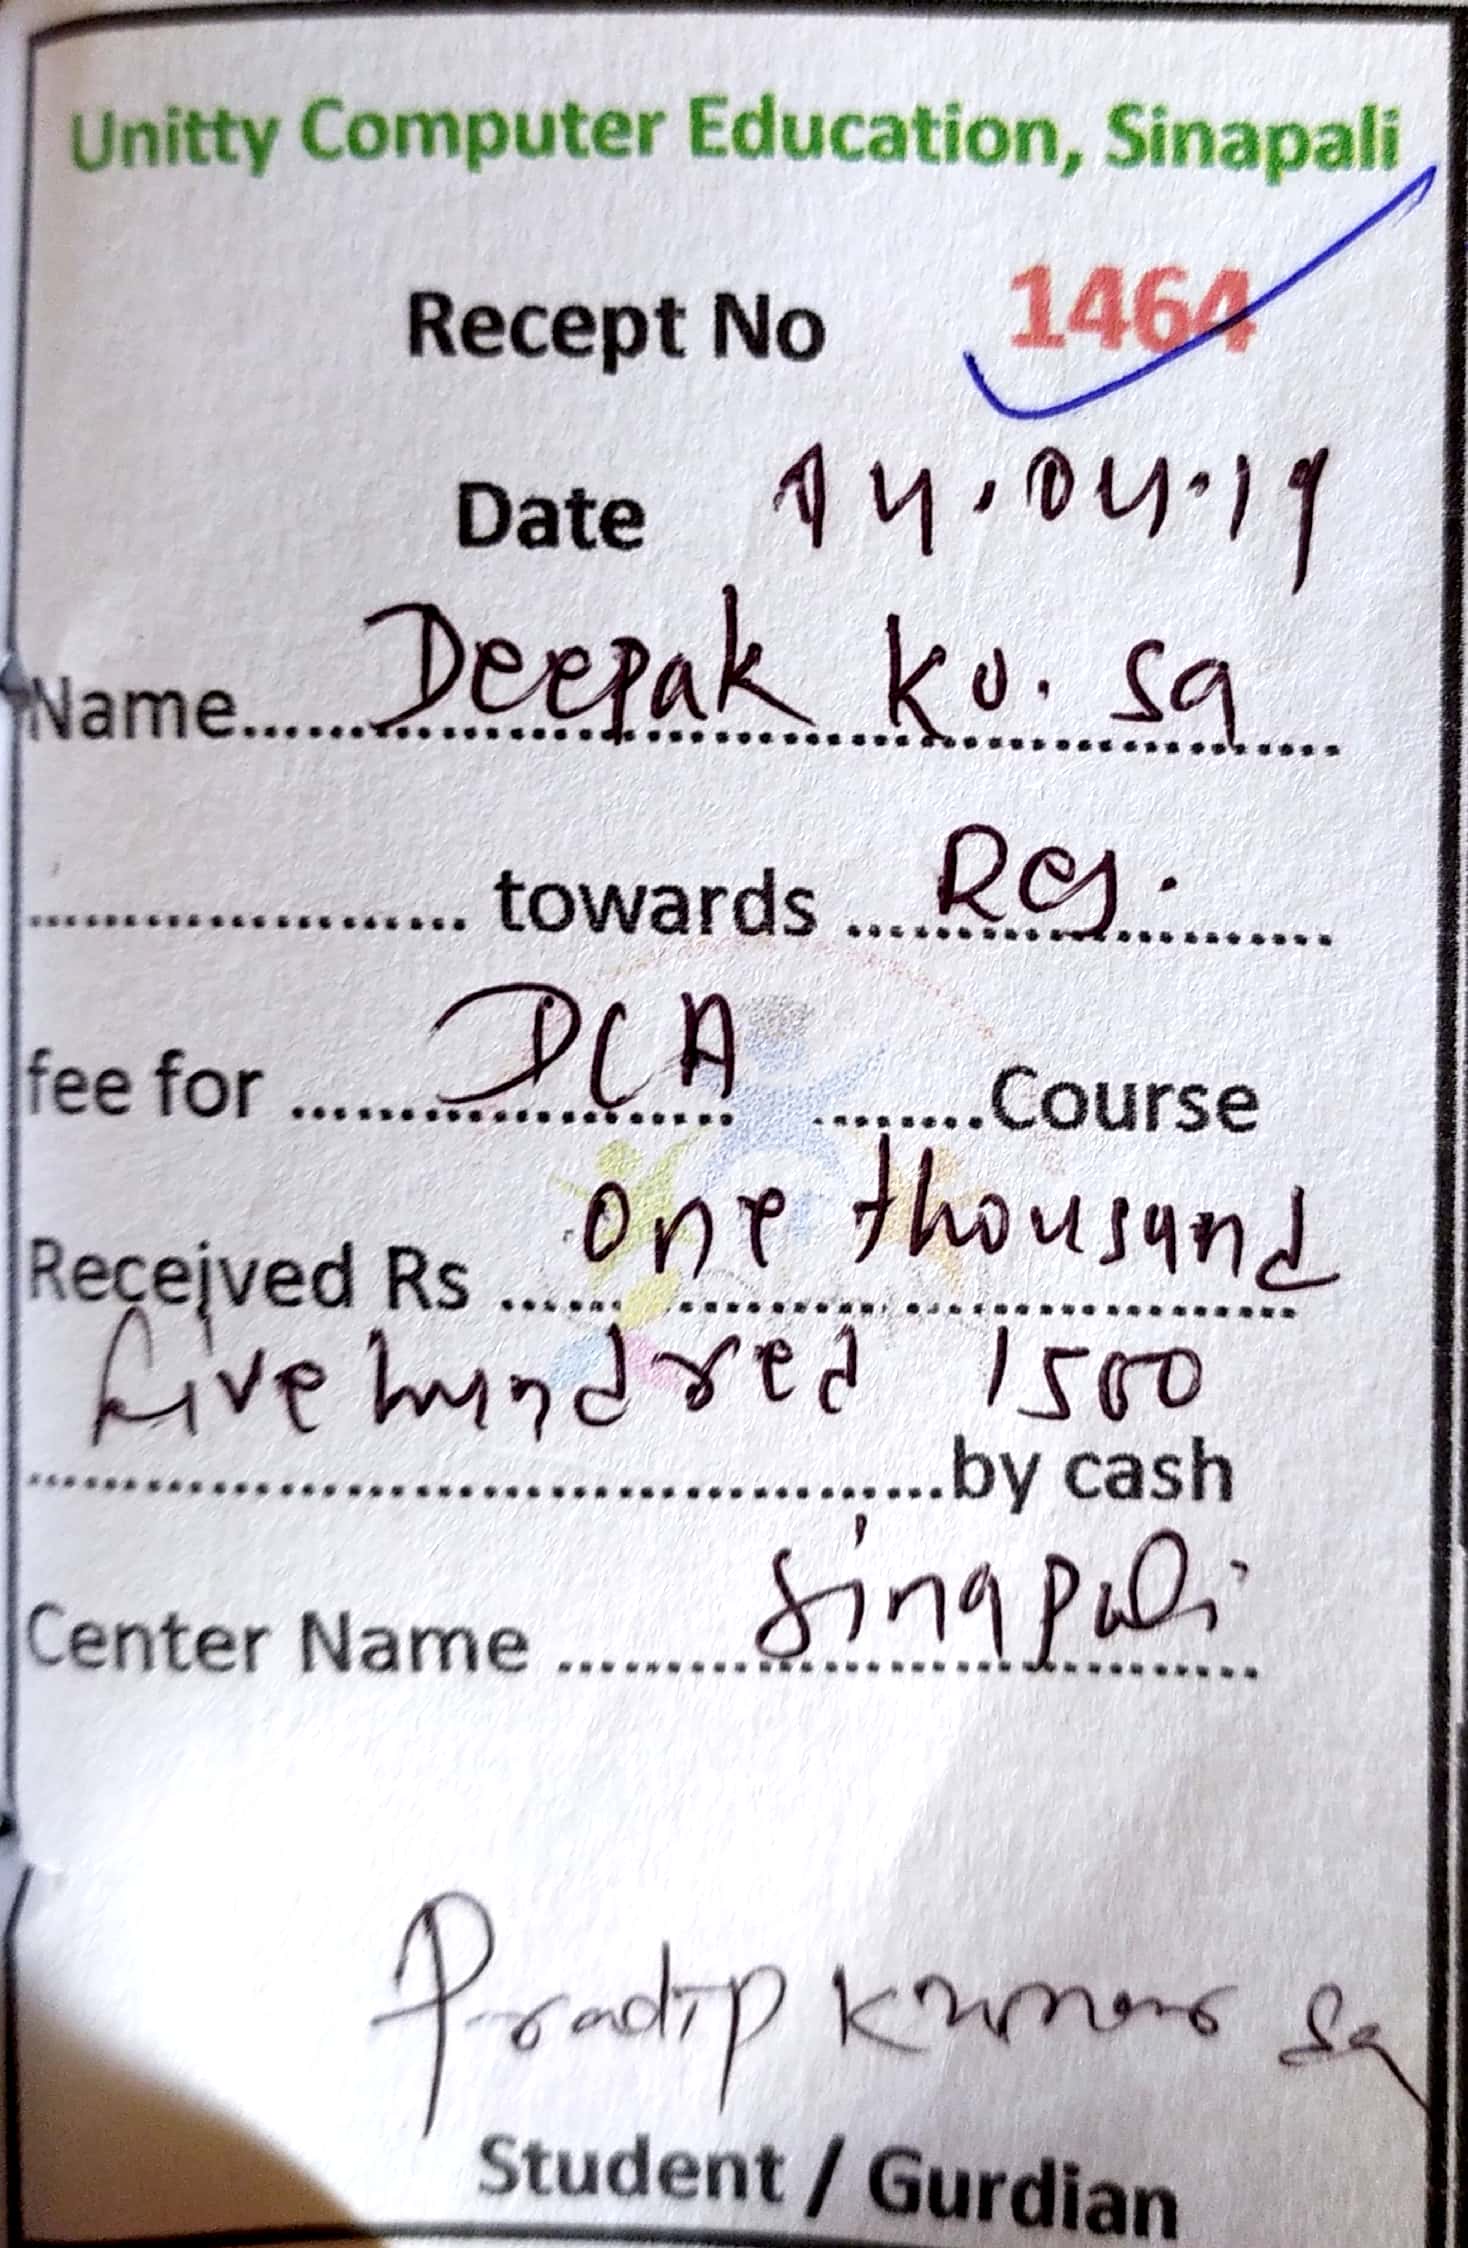 Unitty Computer Education, Sinapali
Recept No 1464
Date 04.04.19
Name......Deepak Ku. Sa
.................... towards ....Reg.
fee for ......DCA ........Course
Received Rs ......one thousand
five hundred 1500
....................by cash
Center Name ........Sinapali
Pradip Kumar Sa
Student / Gurdian